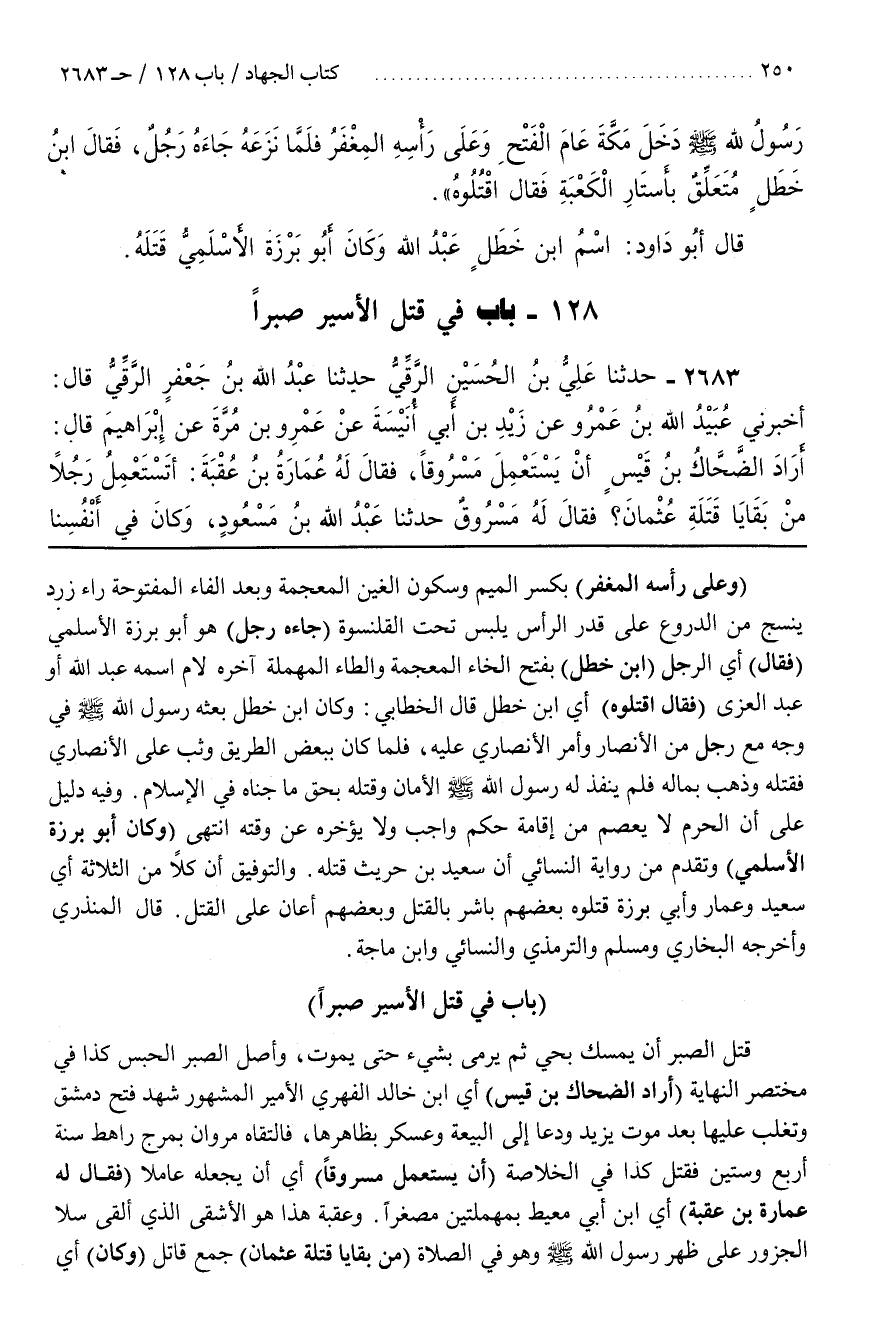 ٢٥٠ ................................................ كتاب الجهاد / باب ١٢٨ / حـ ٢٦٨٣
رَسُولُ لله ﷺ دَخَلَ مَكَّةَ عَامَ الْفَتْحِ وَعَلَى رَأْسِهِ المِغْفَرُ فلَمَّا نَزَعَهُ جَاءَهُ رَجُلٌ، فَقالَ ابنُ
خَطَلٍ مُتَعَلِّقٌ بأَستَارِ الْكَعْبَةِ فَقال اقْتُلُوهُ».
قال أبُو دَاود: اسْمُ ابن خَطَلٍ عَبْدُ الله وَكَانَ أَبُو بَرْزَةَ الأَسْلَمِيُّ قَتَلَهُ.
١٢٨ - باب في قتل الأسير صبراً
٢٦٨٣ - حدثنا عَلِيُّ بنُ الحُسَيْنِ الرَّقِّيُّ حدثنا عبْدُ الله بنُ جَعْفرٍ الرَّقِّيُّ قال:
أخبرني عُبَيْدُ الله بنُ عَمْرُو عن زَيْدِ بن أبي أُنَيْسَةَ عنْ عَمْرِو بن مُرَّةَ عن إِبْرَاهيمَ قال:
أَرَادَ الضَّحَّاكُ بنُ قَيْسٍ أنْ يَسْتَعْمِلَ مَسْرُوقاً، فقالَ لَهُ عُمَارَةُ بنُ عُقْبَةَ: أتَسْتَعْمِلُ رَجُلًا
منْ بَقَايَا قَتَلَةِ عُثْمانَ؟ فقالَ لَهُ مَسْرُوقٌ حدثنا عَبْدُ الله بنُ مَسْعُودٍ، وَكانَ في أَنْفُسِنا
(وعلى رأسه المغفر) بكسر الميم وسكون الغين المعجمة وبعد الفاء المفتوحة راء زرد
ينسج من الدروع على قدر الرأس يلبس تحت القلنسوة (جاءه رجل) هو أبو برزة الأسلمي
(فقال) أي الرجل (ابن خطل) بفتح الخاء المعجمة والطاء المهملة آخره لام اسمه عبد الله أو
عبد العزى (فقال اقتلوه) أي ابن خطل قال الخطابي: وكان ابن خطل بعثه رسول الله ﷺ في
وجه مع رجل من الأنصار وأمر الأنصاري عليه، فلما كان ببعض الطريق وثب على الأنصاري
فقتله وذهب بماله فلم ينفذ له رسول الله ﷺ الأمان وقتله بحق ما جناه في الإسلام. وفيه دليل
على أن الحرم لا يعصم من إقامة حكم واجب ولا يؤخره عن وقته انتهى (وكان أبو برزة
الأسلمي) وتقدم من رواية النسائي أن سعيد بن حريث قتله. والتوفيق أن كلاً من الثلاثة أي
سعيد وعمار وأبي برزة قتلوه بعضهم باشر بالقتل وبعضهم أعان على القتل. قال المنذري
وأخرجه البخاري ومسلم والترمذي والنسائي وابن ماجة.
(باب في قتل الأسير صبراً)
قتل الصبر أن يمسك بحي ثم يرمى بشيء حتى يموت، وأصل الصبر الحبس كذا في
مختصر النهاية (أراد الضحاك بن قيس) أي ابن خالد الفهري الأمير المشهور شهد فتح دمشق
وتغلب عليها بعد موت يزيد ودعا إلى البيعة وعسكر بظاهرها، فالتقاه مروان بمرج راهط سنة
أربع وستين فقتل كذا في الخلاصة (أن يستعمل مسروقاً) أي أن يجعله عاملا (فقال له
عمارة بن عقبة) أي ابن أبي معيط بمهملتين مصغراً. وعقبة هذا هو الأشقى الذي ألقى سلا
الجزور على ظهر رسول الله ﷺ وهو في الصلاة (من بقايا قتلة عثمان) جمع قاتل (وكان) أي